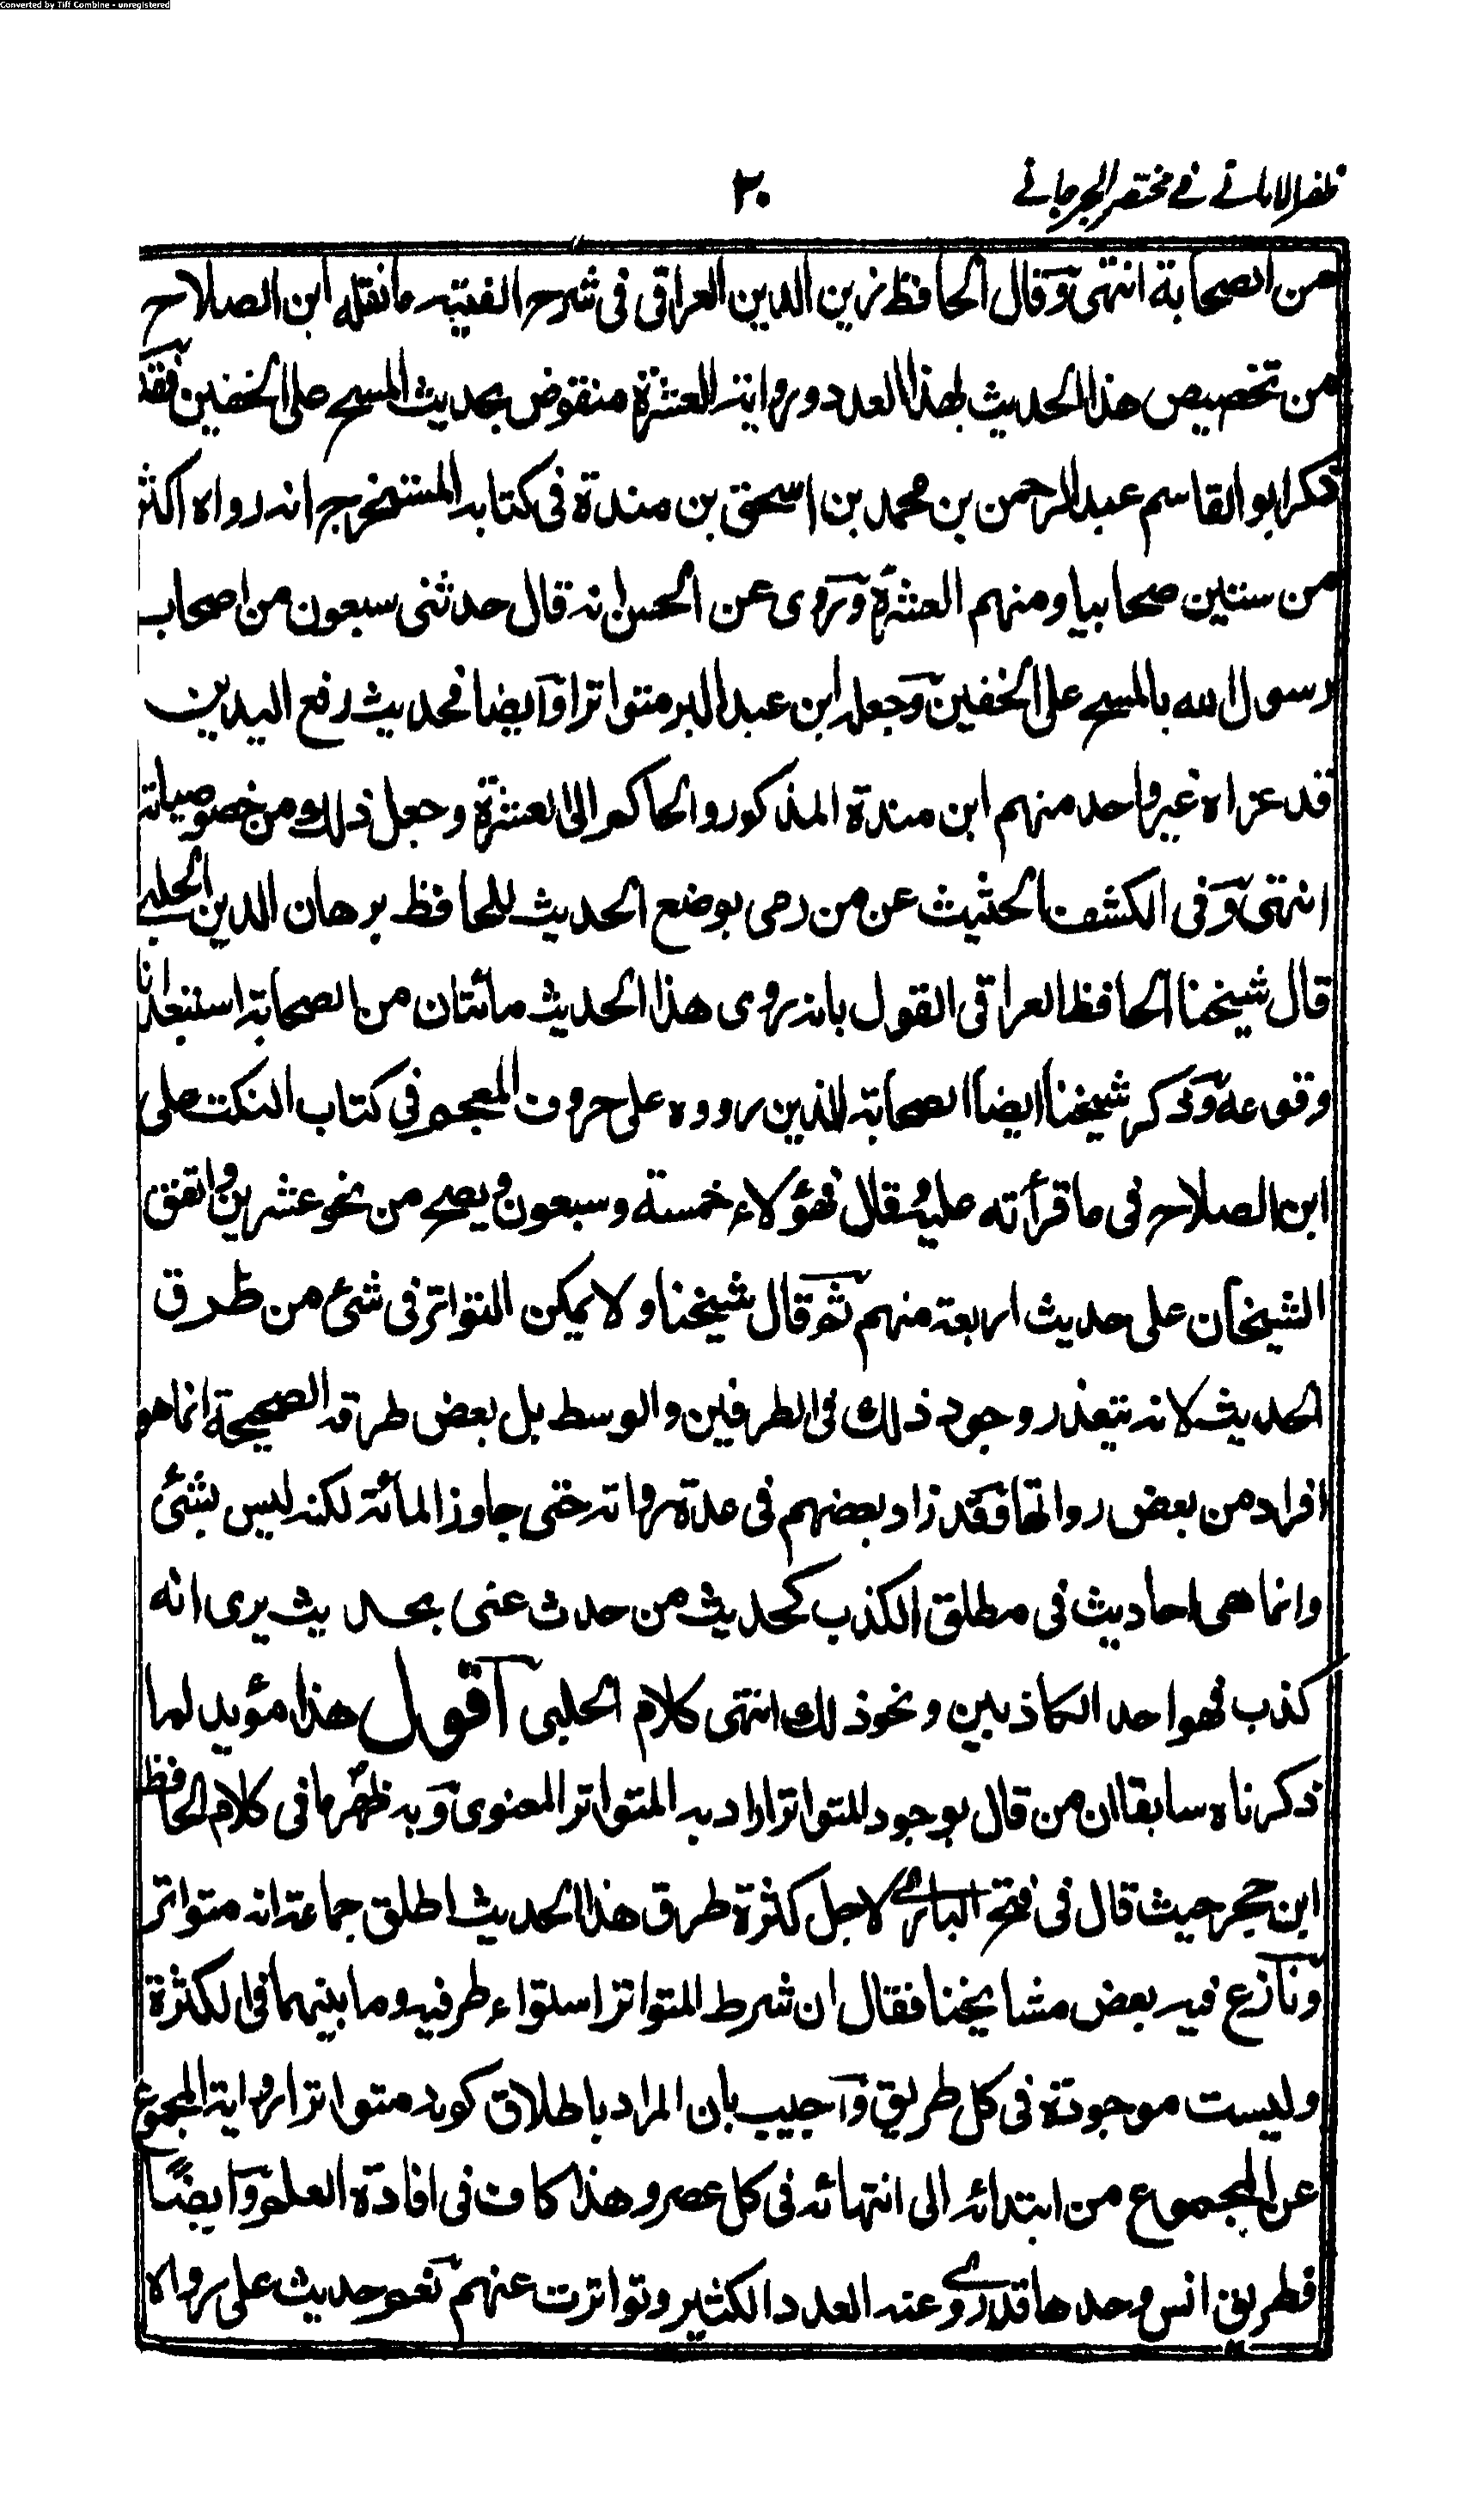 Converted by Tiff Combine - unregistered
ظفر الامانے فے مختصر الجرجانے
٢٠
من الصحابة انتهى وقال الحافظ زين الدين العراقى فى شرح الفيته ما نقله ابن الصلاح
من تخصيص هذا الحديث لهذا العدد ورواية العشرة منقوض بحديث المسح على الخفين فقد
ذكر ابو القاسم عبد الرحمن بن محمد بن اسحق بن مندة فى كتابه المستخرج انه رواه اكثر
من ستين صحابيا ومنهم العشرة وروى عن الحسن انه قال حدثنى سبعون من اصحاب
رسول الله بالمسح على الخفين وجعله ابن عبد البر متواترا وايضا فحديث رفع اليدين
قد عزاه غير واحد منهم ابن مندة المذكور والحاكم الى العشرة وجعل ذلك من خصوصياته
انتهى وفى الكشف الحثيث عن من رمى بوضع الحديث للحافظ برهان الدين الحلبے
قال شيخنا الحافظ العراقى القول بانه روى هذا الحديث مائتان من الصحابة استبعد انا
وقوعه وذكر شيخنا ايضا الصحابة الذين رووه على حروف المعجم فى كتاب النكت على
ابن الصلاح فى ما قرأته عليه فقال فهؤلاء خمسة وسبعون ويصح من نحو عشرين واتفق
الشيخان على حديث اربعة منهم ثم قال شيخنا ولا يمكن التواتر فى شئ من طرق
الحديث لانه يتعذر وجود ذلك فى الطرفين والوسط بل بعض طرقه الصحيحة انما هو
افراد من بعض رواتها فقد زاد بعضهم فى عدة رواته حتى جاوز المائة لكنه ليس بشئ
وانما هى احاديث فى مطلق الكذب كحديث من حدث عنى بحديث يرى انه
كذب فهو احد الكاذبين ونحو ذلك انتهى كلام الحلبى اقول هذا مؤيد لما
ذكرناه سابقا ان من قال بوجود المتواتر اراد به المتواتر المعنوى وبه ظهر ما فى كلام الحافظ
ابن حجر حيث قال فى فتح البارے لاجل كثرة طرق هذا الحديث اطلق جماعة انه متواتر
ونازع فيه بعض مشايخنا فقال ان شرط المتواتر استواء طرفيه وما بينهما فى الكثرة
وليست موجودة فى كل طريق واجيب بان المراد باطلاق كونه متواترا رواية المجموع
عن المجموع من ابتدائه الى انتهائه فى كل عصر وهذا كاف فى افادة العلم وايضًا
فطريق انس وحدها قد روے عنه العدد الكثير وتواترت عنهم نعم حديث على رواه